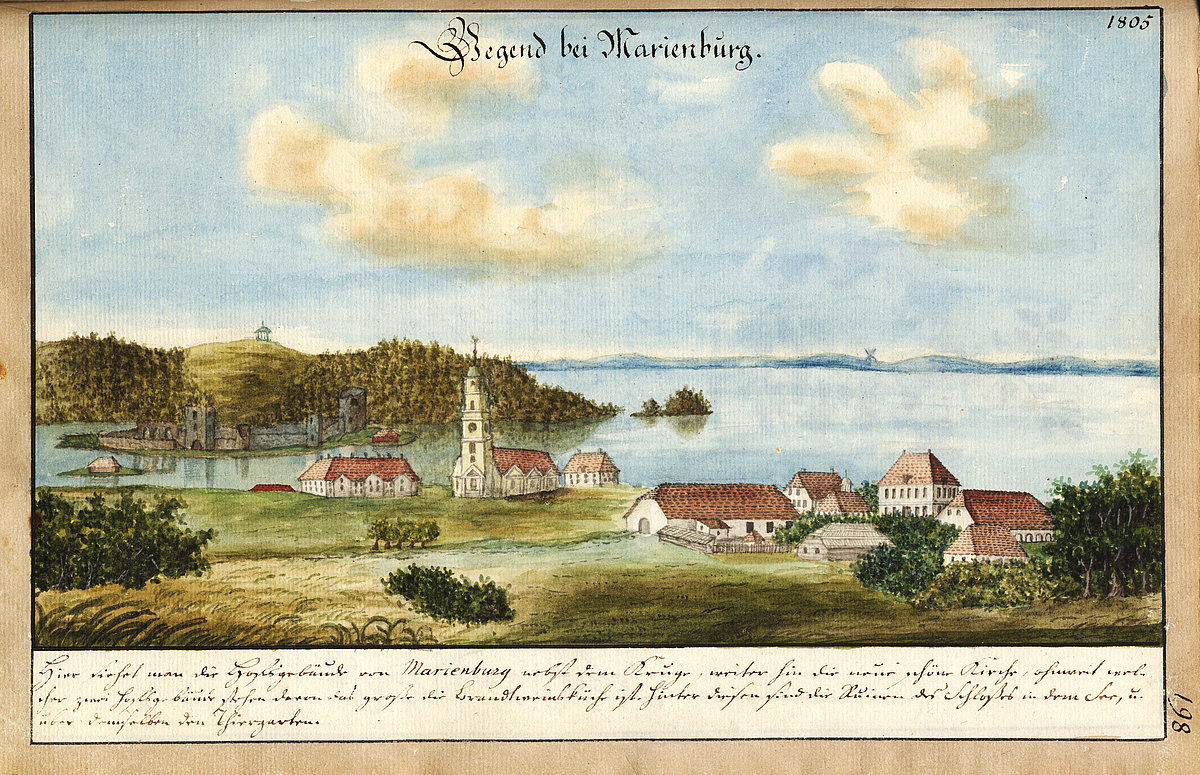 1805
Gegend bei Marienburg.
Hier siehet man die Hofsgebäude von Marienburg nebst dem Kruge, weiter hin die neue schöne Kirche, ohnweit wel-
cher zwei Hofsgebäude stehen deren das große die Brandtweinsküche ist. Hinter diesen sind die Ruinen des Schloßes in dem See, u.
über demselben den Thiergarten.
198